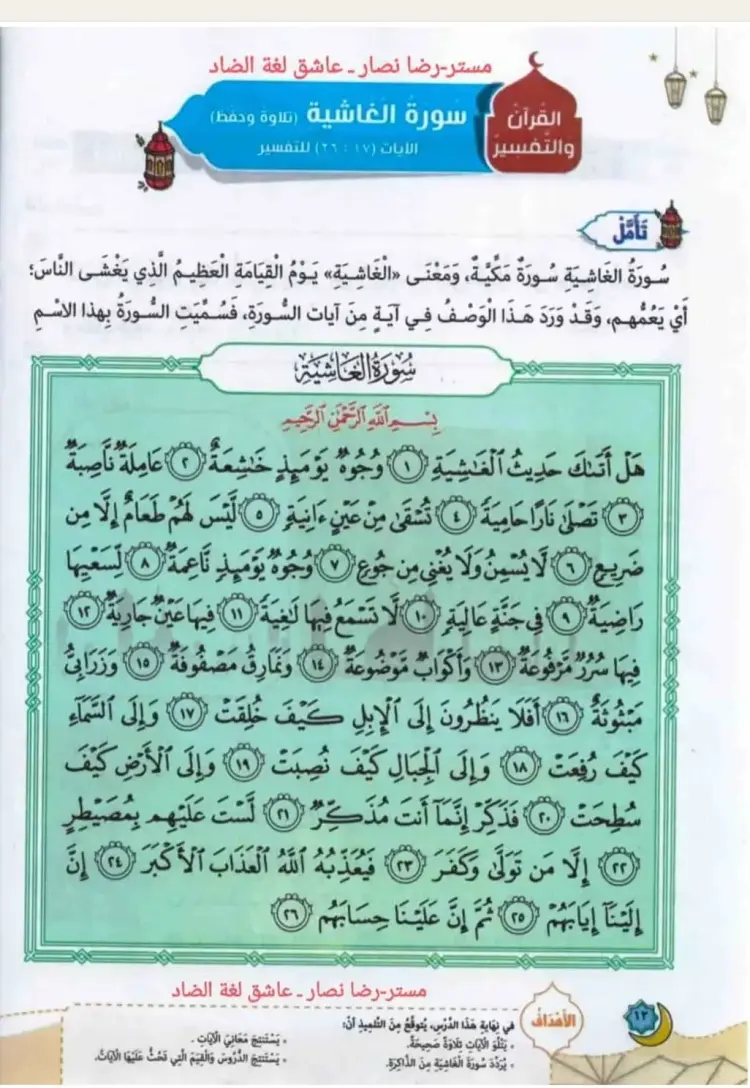 مستر-رضا نصار ـ عاشق لغة الضاد
القرآن
والتفسير
سورة الغاشية (تلاوة وحفظ)
الآيات (١٧ : ٢٦) للتفسير
تَأَمَّلْ
سُورَةُ الغَاشِيَةِ سُورَةٌ مَكِّيَّةٌ، وَمَعْنَى «الْغَاشِيَةِ» يَوْمُ الْقِيَامَةِ الْعَظِيمُ الَّذِي يَغْشَى النَّاسَ؛
أَيْ يَعُمُّهم، وَقَدْ وَرَدَ هَذَا الْوَصْفُ فِي آيَةٍ مِنَ آيَاتِ السُّورَةِ، فَسُمِّيَتِ السُّورَةُ بِهذَا الاسْمِ
سُورَةُ الغَاشِيَةِ
بِسْمِ اللَّهِ الرَّحْمَٰنِ الرَّحِيمِ
هَلْ أَتَىٰكَ حَدِيثُ الْغَٰشِيَةِ ١ وُجُوهٌ يَوْمَئِذٍ خَٰشِعَةٌ ٢ عَامِلَةٌ نَّاصِبَةٌ
٣ تَصْلَىٰ نَارًا حَامِيَةً ٤ تُسْقَىٰ مِنْ عَيْنٍ ءَانِيَةٍ ٥ لَّيْسَ لَهُمْ طَعَامٌ إِلَّا مِن
ضَرِيعٍ ٦ لَّا يُسْمِنُ وَلَا يُغْنِي مِن جُوعٍ ٧ وُجُوهٌ يَوْمَئِذٍ نَّاعِمَةٌ ٨ لِّسَعْيِهَا
رَاضِيَةٌ ٩ فِي جَنَّةٍ عَالِيَةٍ ١٠ لَّا تَسْمَعُ فِيهَا لَٰغِيَةً ١١ فِيهَا عَيْنٌ جَارِيَةٌ ١٢
فِيهَا سُرُرٌ مَّرْفُوعَةٌ ١٣ وَأَكْوَابٌ مَّوْضُوعَةٌ ١٤ وَنَمَارِقُ مَصْفُوفَةٌ ١٥ وَزَرَابِيُّ
مَبْثُوثَةٌ ١٦ أَفَلَا يَنظُرُونَ إِلَى الْإِبِلِ كَيْفَ خُلِقَتْ ١٧ وَإِلَى السَّمَاءِ
كَيْفَ رُفِعَتْ ١٨ وَإِلَى الْجِبَالِ كَيْفَ نُصِبَتْ ١٩ وَإِلَى الْأَرْضِ كَيْفَ
سُطِحَتْ ٢٠ فَذَكِّرْ إِنَّمَا أَنتَ مُذَكِّرٌ ٢١ لَّسْتَ عَلَيْهِم بِمُصَيْطِرٍ
٢٢ إِلَّا مَن تَوَلَّىٰ وَكَفَرَ ٢٣ فَيُعَذِّبُهُ اللَّهُ الْعَذَابَ الْأَكْبَرَ ٢٤ إِنَّ
إِلَيْنَا إِيَابَهُمْ ٢٥ ثُمَّ إِنَّ عَلَيْنَا حِسَابَهُم ٢٦
مستر-رضا نصار ـ عاشق لغة الضاد
١٣
الأهداف
في نِهَايَةِ هَذَا الدَّرْسِ، يُتَوَقَّعُ مِنَ التِّلْمِيذِ أَنْ:
• يَتْلُوَ الْآيَاتِ تِلَاوَةً صَحِيحَةً.
• يُرَدِّدَ سُورَةَ الْغَاشِيَةِ مِنَ الذَّاكِرَةِ.
• يَسْتَنْتِجَ مَعَانِيَ الْآيَاتِ.
• يَسْتَنْتِجَ الدُّرُوسَ وَالْقِيَمَ الَّتِي تَحُثُّ عَلَيْهَا الْآيَاتُ.